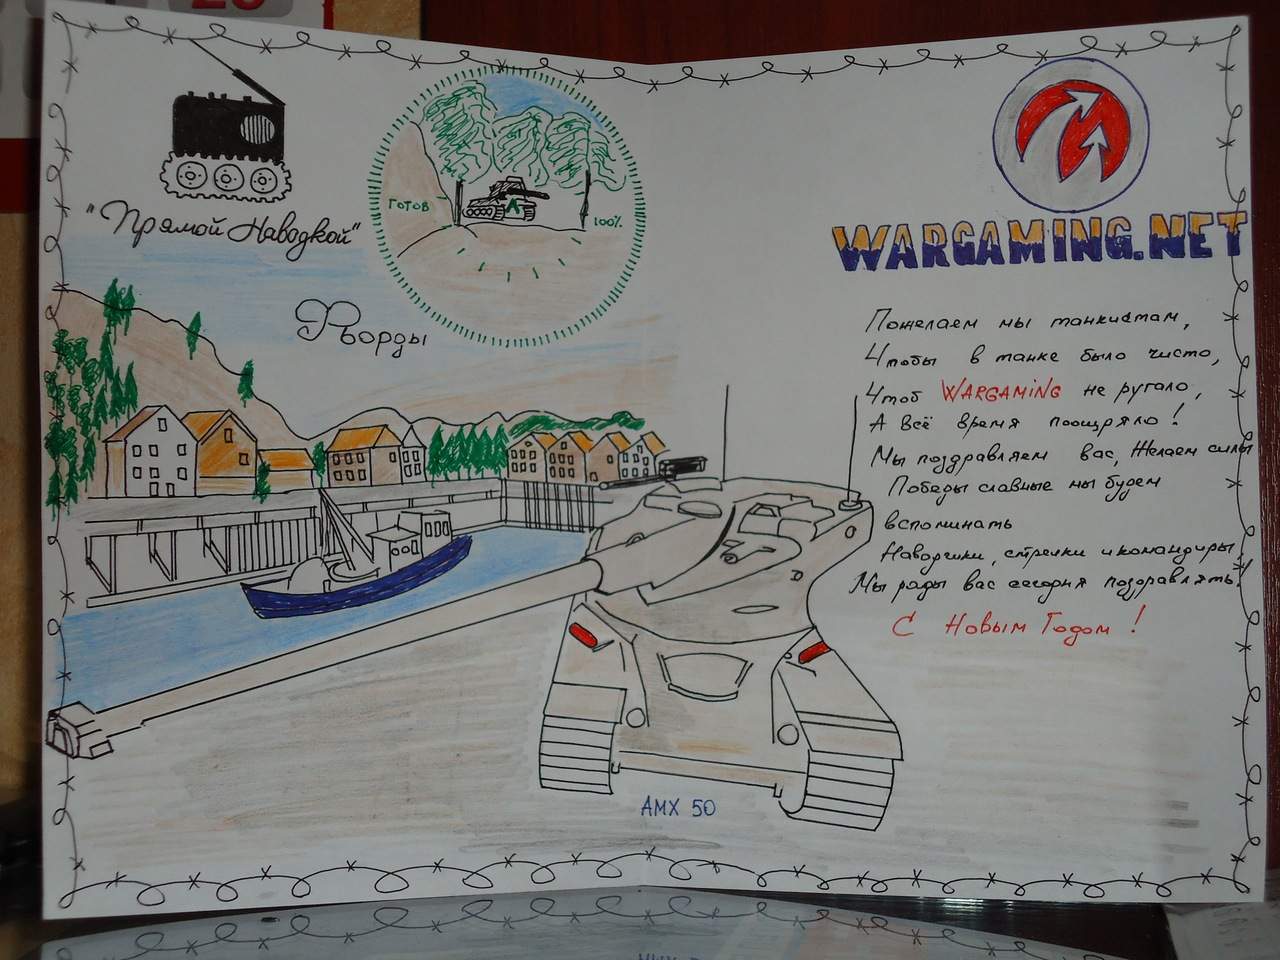 "Прямой Наводкой"
ГОТОВ
100%
Фьорды
WARGAMING.NET
Пожелаем мы танкистам,
Чтобы в танке было чисто,
Чтоб WARGAMING не ругало,
А всё время поощряло!
Мы поздравляем вас, Желаем силы
Победы славные мы будем
вспоминать
Наводчики, стрелки и командиры,
Мы рады вас сегодня поздравлять!
С Новым Годом!
AMX 50